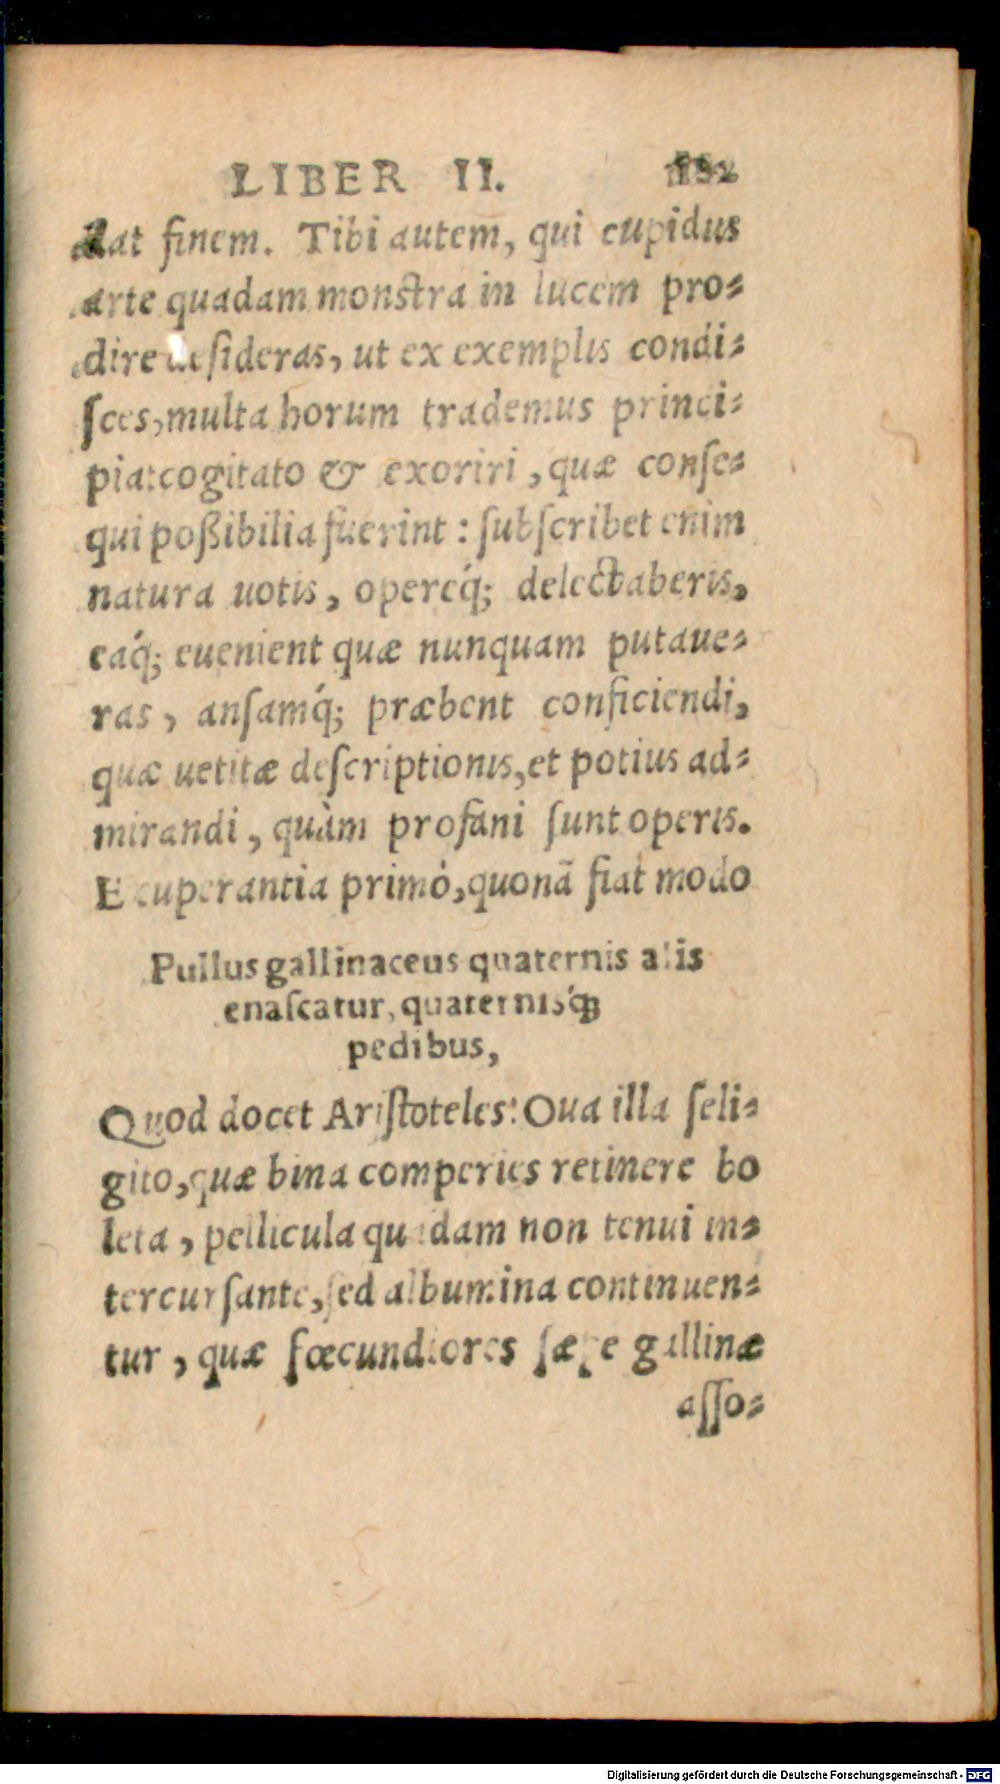 LIBER II.
finem. Tibi autem, qui cupidus
arte quadam monstra in lucem pro⸗
dire desideras, ut ex exemplis condi⸗
ſces, multa horum trademus princi⸗
pia: cogitato & exoriri, quæ conſe⸗
qui poßibilia fuerint: ſubſcribet enim
natura uotis, opereq́; delectaberis,
eaq́; euenient quæ nunquam putaue⸗
ras, anſamq́; præbent conficiendi,
quæ uetitæ deſcriptionis, et potius ad⸗
mirandi, quàm profani ſunt operis.
primò, quonã fiat modo
Pullus gallinaceus quaternis alis
enaſcatur, quaternisq́;
pedibus,
Quod docet Ariſtoteles: Oua illa ſeli⸗
gito, quæ bina comperies retinere bo
leta, pellicula quadam non tenui in⸗
tercurſante, ſed albumina continuen⸗
tur, quæ fœcundiores ſæpe gallinæ
aſſo⸗
Digitalisierung gefördert durch die Deutsche Forschungsgemeinschaft - DFG